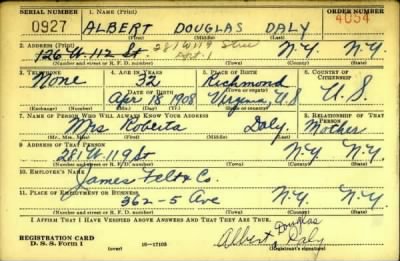 SERIAL NUMBER 1. NAME (Print) ORDER NUMBER
0927 ALBERT DOUGLAS DALY 4054
2. ADDRESS (Print)
126 W. 112 St 281 W 119 Apt. 1 N.Y. N.Y.
(Number and street or R. F. D. number) (Town) (County) (State)
3. TELEPHONE 4. AGE IN YEARS 5. PLACE OF BIRTH 6. COUNTRY OF CITIZENSHIP
None 32 Richmond
DATE OF BIRTH (Town or county)
Apr 18 1908 Virginia, U.S U.S.
(Exchange) (Number) (Mo.) (Day) (Yr.) (State or country)
7. NAME OF PERSON WHO WILL ALWAYS KNOW YOUR ADDRESS 8. RELATIONSHIP OF THAT PERSON
Mrs Roberta Daly Mother
(Mr., Mrs., Miss) (First) (Middle) (Last)
9. ADDRESS OF THAT PERSON
281 W. 119 St N.Y. N.Y.
(Number and street or R. F. D. number) (Town) (County) (State)
10. EMPLOYER'S NAME
James Felt & Co.
11. PLACE OF EMPLOYMENT OR BUSINESS
362-5 Ave N.Y. N.Y.
(Number and street or R. F. D. number) (Town) (County) (State)
I AFFIRM THAT I HAVE VERIFIED ABOVE ANSWERS AND THAT THEY ARE TRUE.
REGISTRATION CARD
D. S. S. Form 1 (over) 16-17105
Albert Douglas Daly
(Registrant's signature)